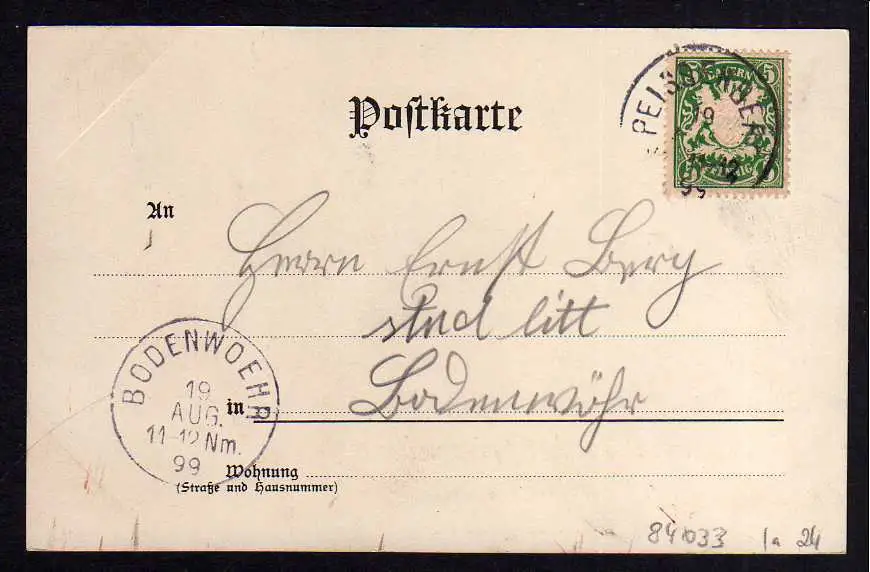 Postkarte
BAYERN
5 5
PFENNIG
PEISSENBERG
19
11-12
99
An
Herrn Ernst Berg
stud litt
BODENWOEHR
19
AUG.
11-12 Nm.
99
in Bodenwöhr
Wohnung
(Straße und Hausnummer)
84033 1a 24